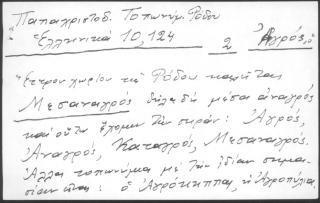 Παπαχριστοδ. Τοπωνύμ. Ρόδου
Ἑλληνικά 10, 124
2 Ἀγρός, ὁ
Ἕτερον χωρίον τῆς Ρόδου καλεῖται
Μεσαναγρός δηλαδὴ μέσα ἀναγρός
καὶ οὕτω ἔχομεν τὴν σειράν: Ἀγρός,
Ἀναγρός, Καταγρός, Μεσαναγρός.
Ἄλλα τοπωνύμια μὲ τὴν ἰδίαν σημα-
σίαν εἶναι: ὁ Ἀγρόκηπος, ἡ Ἀγροπύλια.